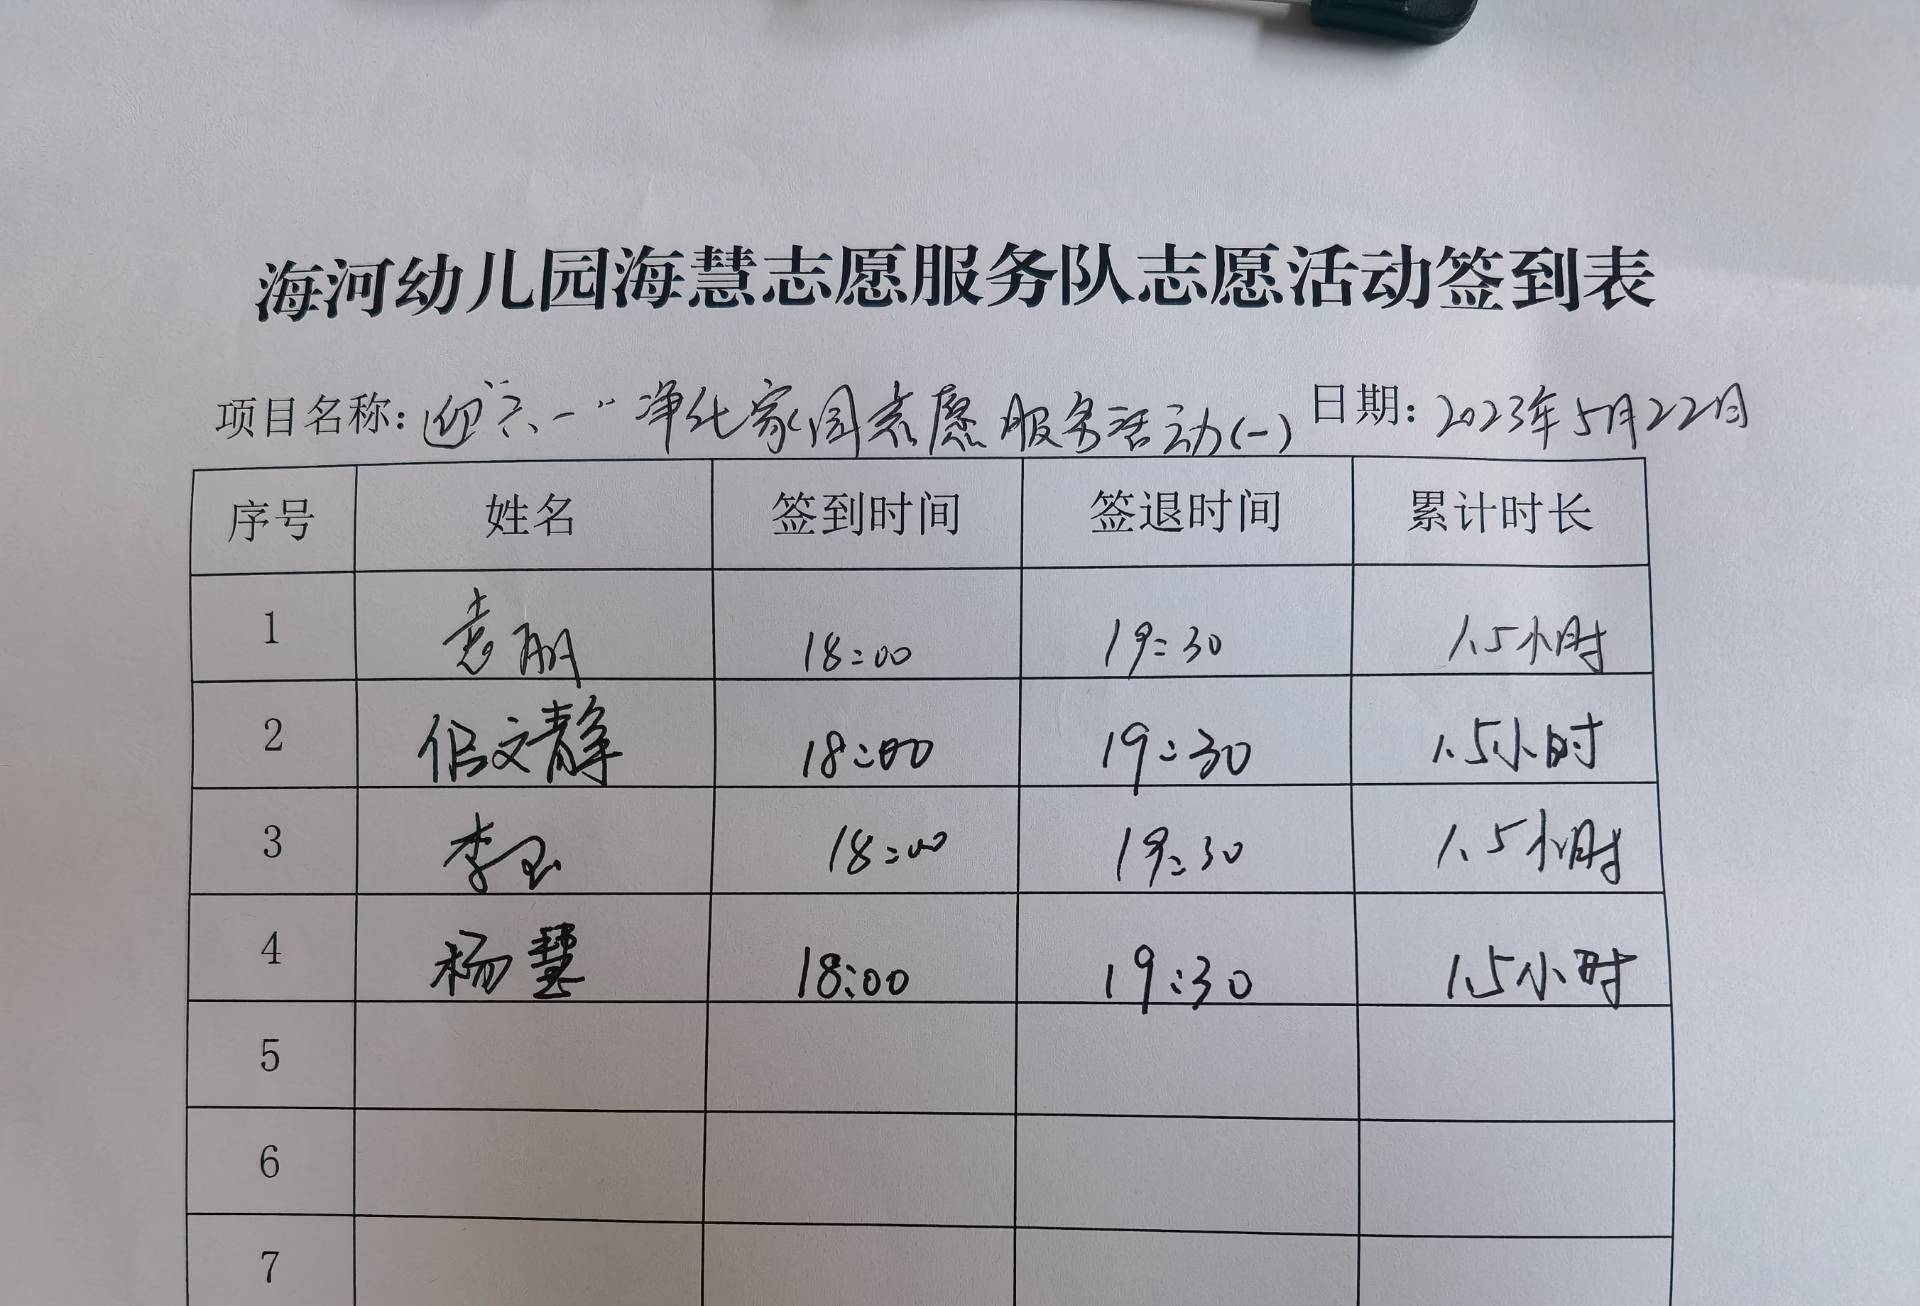 海河幼儿园海慧志愿服务队志愿活动签到表
项目名称:迎“六一”净化家园志愿服务活动(一) 日期:2023年5月22日
序号 姓名 签到时间 签退时间 累计时长
1 袁丽 18:00 19:30 1.5小时
2 文静 18:00 19:30 1.5小时
3 李玉 18:00 19:30 1.5小时
4 杨慧 18:00 19:30 1.5小时
5
6
7